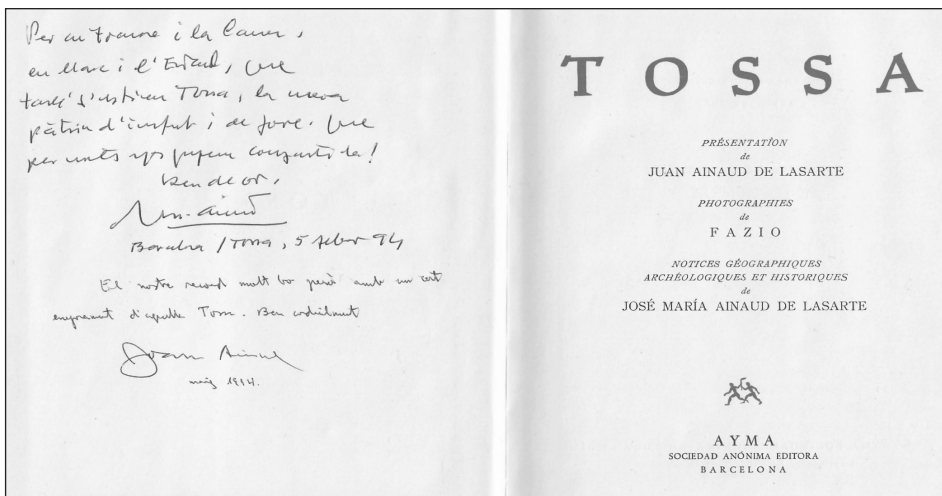 Per en i la
en Marc i l'
també s'estimen Tossa, la meva
pàtria d'infant i de jove. Que
per molts anys puguem compartir-la!
Ben de cor,
Barcelona / Tossa, 5 febrer 94
El nostre record molt bo però amb un cert
d'aquella Tossa. Ben cordialment
Joan Ainaud
maig 1994.
TOSSA
PRÉSENTATION
de
JUAN AINAUD DE LASARTE
PHOTOGRAPHIES
de
FAZIO
NOTICES GÉOGRAPHIQUES
ARCHÉOLOGIQUES ET HISTORIQUES
de
JOSÉ MARÍA AINAUD DE LASARTE
AYMA
SOCIEDAD ANÓNIMA EDITORA
BARCELONA